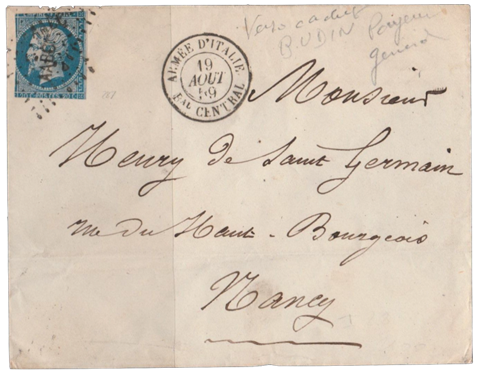 Verso cachet
BUDIN Payeur
général
ARMÉE D'ITALIE
19
AOUT
59
Bau CENTRAL
Monsieur
Henry de Saint Germain
rue du Haut-Bourgeois
Nancy